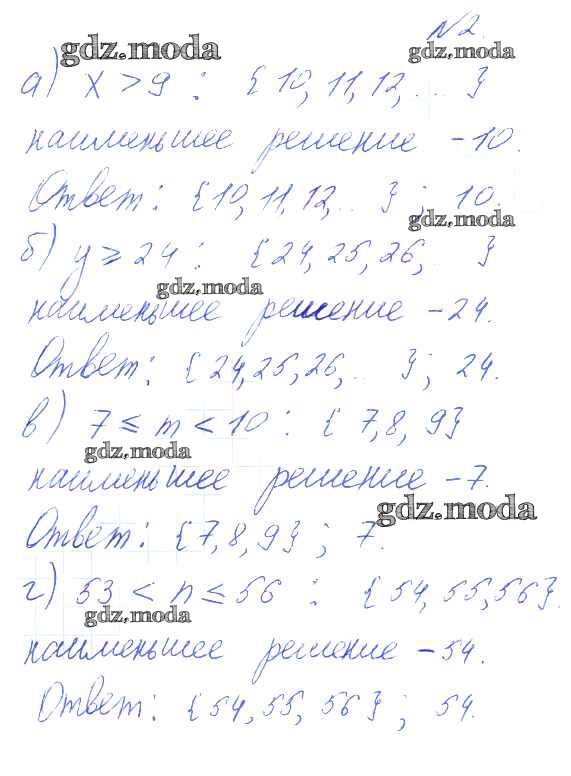 №2.
gdz.moda gdz.moda
а) x > 9 : {10, 11, 12, ... }
наименьшее решение – 10.
Ответ: {10, 11, 12, .. } ; 10.
gdz.moda
б) y ≥ 24 : {24, 25, 26, .. }
gdz.moda
наименьшее решение – 24.
Ответ: {24, 25, 26, .. } ; 24.
в) 7 ≤ m < 10 : {7, 8, 9}
gdz.moda
наименьшее решение – 7.
gdz.moda
Ответ: {7, 8, 9} ; 7.
г) 53 < n ≤ 56 : {54, 55, 56}.
gdz.moda
наименьшее решение – 54.
Ответ: {54, 55, 56} ; 54.